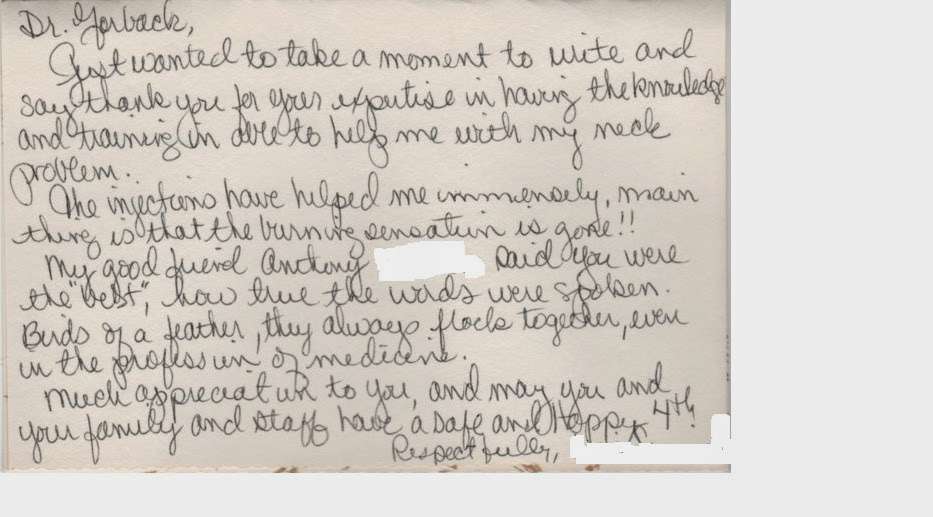 Dr. Gorback,
Just wanted to take a moment to write and
say thank you for your expertise in having the knowledge
and training in able to help me with my neck
problem.
The injections have helped me immensely, main
thing is that the burning sensation is gone!!
My good friend Anthony said you were
the "best", how true the words were spoken.
Birds of a feather, they always flock together, even
in the profession of medicine.
Much appreciation to you, and may you and
your family and staff have a safe and Happy 4th!
Respectfully,